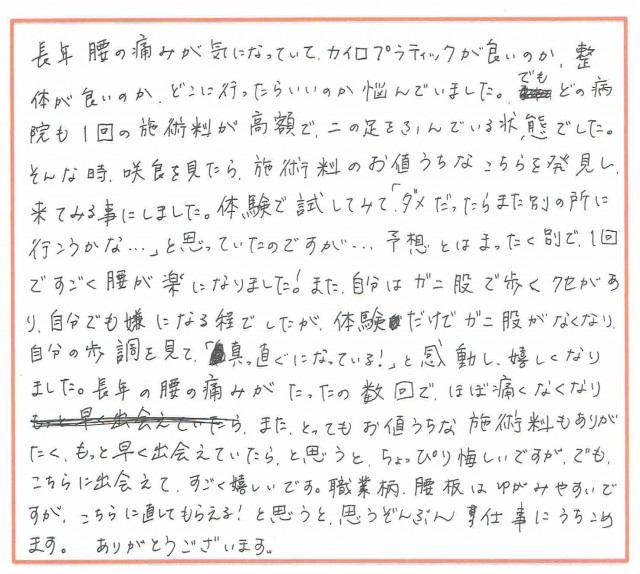 長年 腰の痛みが気になっていて、カイロプラティックが良いのか、整
体が良いのか、どこに行ったらいいのか悩んでいました。でも どの病
院も1回の施術料が高額で、二の足をふんでいる状態でした。
そんな時、咲食を見たら、施術料のお値うちなこちらを発見し、
来てみる事にしました。体験で試してみて、「ダメだったらまた別の所に
行こうかな…」と思っていたのですが…、予想とはまったく別で、1回
ですごく腰が楽になりました！また、自分はガニ股で歩くクセがあ
り、自分でも嫌になる程でしたが、体験だけでガニ股がなくなり、
自分の歩調を見て、「真っ直ぐになっている！」と感動し、嬉しくなり
ました。長年の腰の痛みがたったの数回で、ほぼ痛くなくなり
もっと早く出会えていたら、また、とってもお値うちな施術料もありが
たく、もっと早く出会えていたら、と思うと、ちょっぴり悔しいですが、でも、
こちらに出会えて、すごく嬉しいです。職業柄、腰板はゆがみやすいで
すが、こちらに直してもらえる！と思うと、思うぞんぶん仕事にうちこめ
ます。 ありがとうございます。